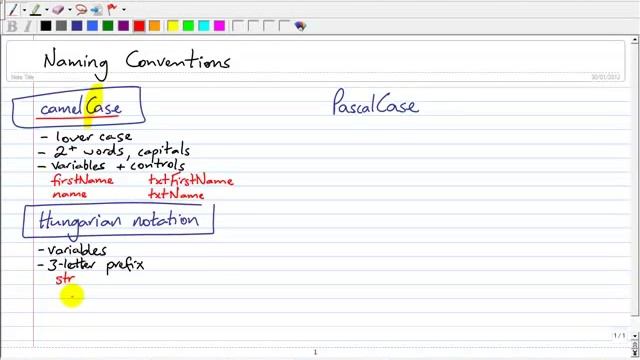 Naming Conventions
Note Title
30/01/2012
camelCase
PascalCase
- lower case
- 2+ words, capitals
- variables + controls
firstName txtFirstName
name txtName
Hungarian notation
- variables
- 3-letter prefix
str
1
1 / 1